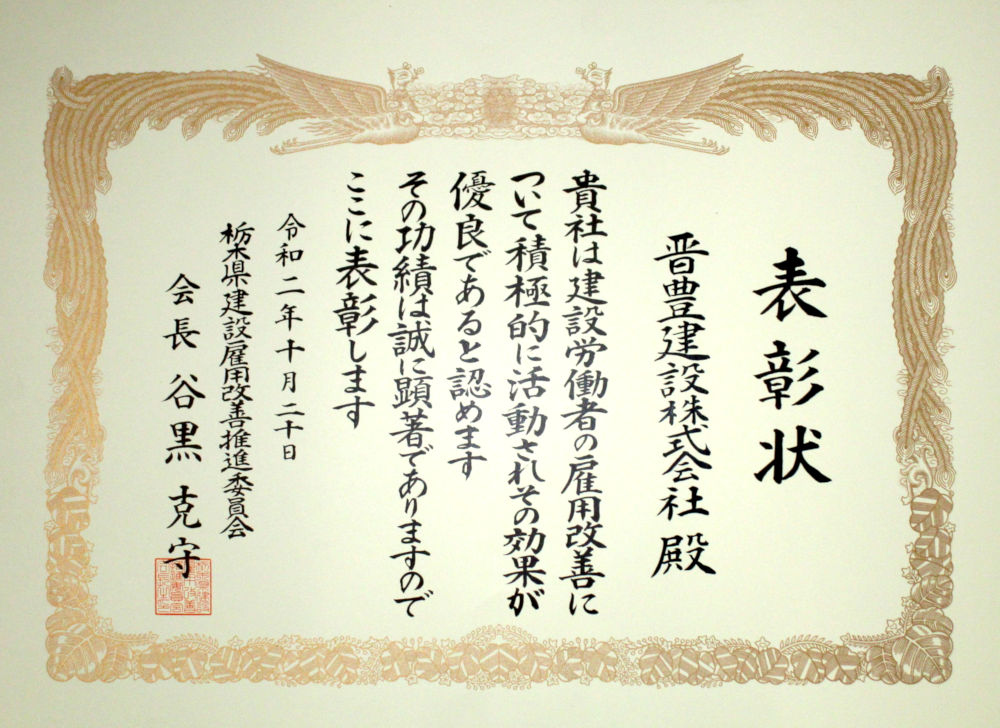 表彰状
晋豊建設株式会社 殿
貴社は建設労働者の雇用改善に
ついて積極的に活動されその効果が
優良であると認めます
その功績は誠に顕著でありますので
ここに表彰します
令和二年十月二十日
栃木県建設雇用改善推進委員会
会長 谷黒克守